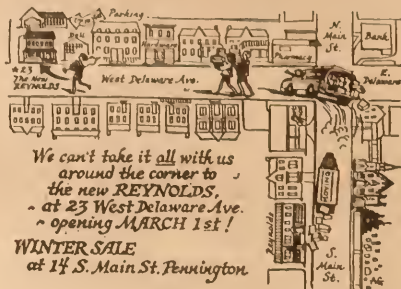 Parking
N.
Main
St.
Bank
Deli
Hardware
Pharmacy
#23
The New
REYNOLDS
West Delaware Ave.
E.
Delaware
We can't take it all with us
around the corner to
the new REYNOLDS,
at 23 West Delaware Ave.
opening MARCH 1st!
WINTER SALE
at 14 S. Main St. Pennington
Reynolds
S.
Main
St.